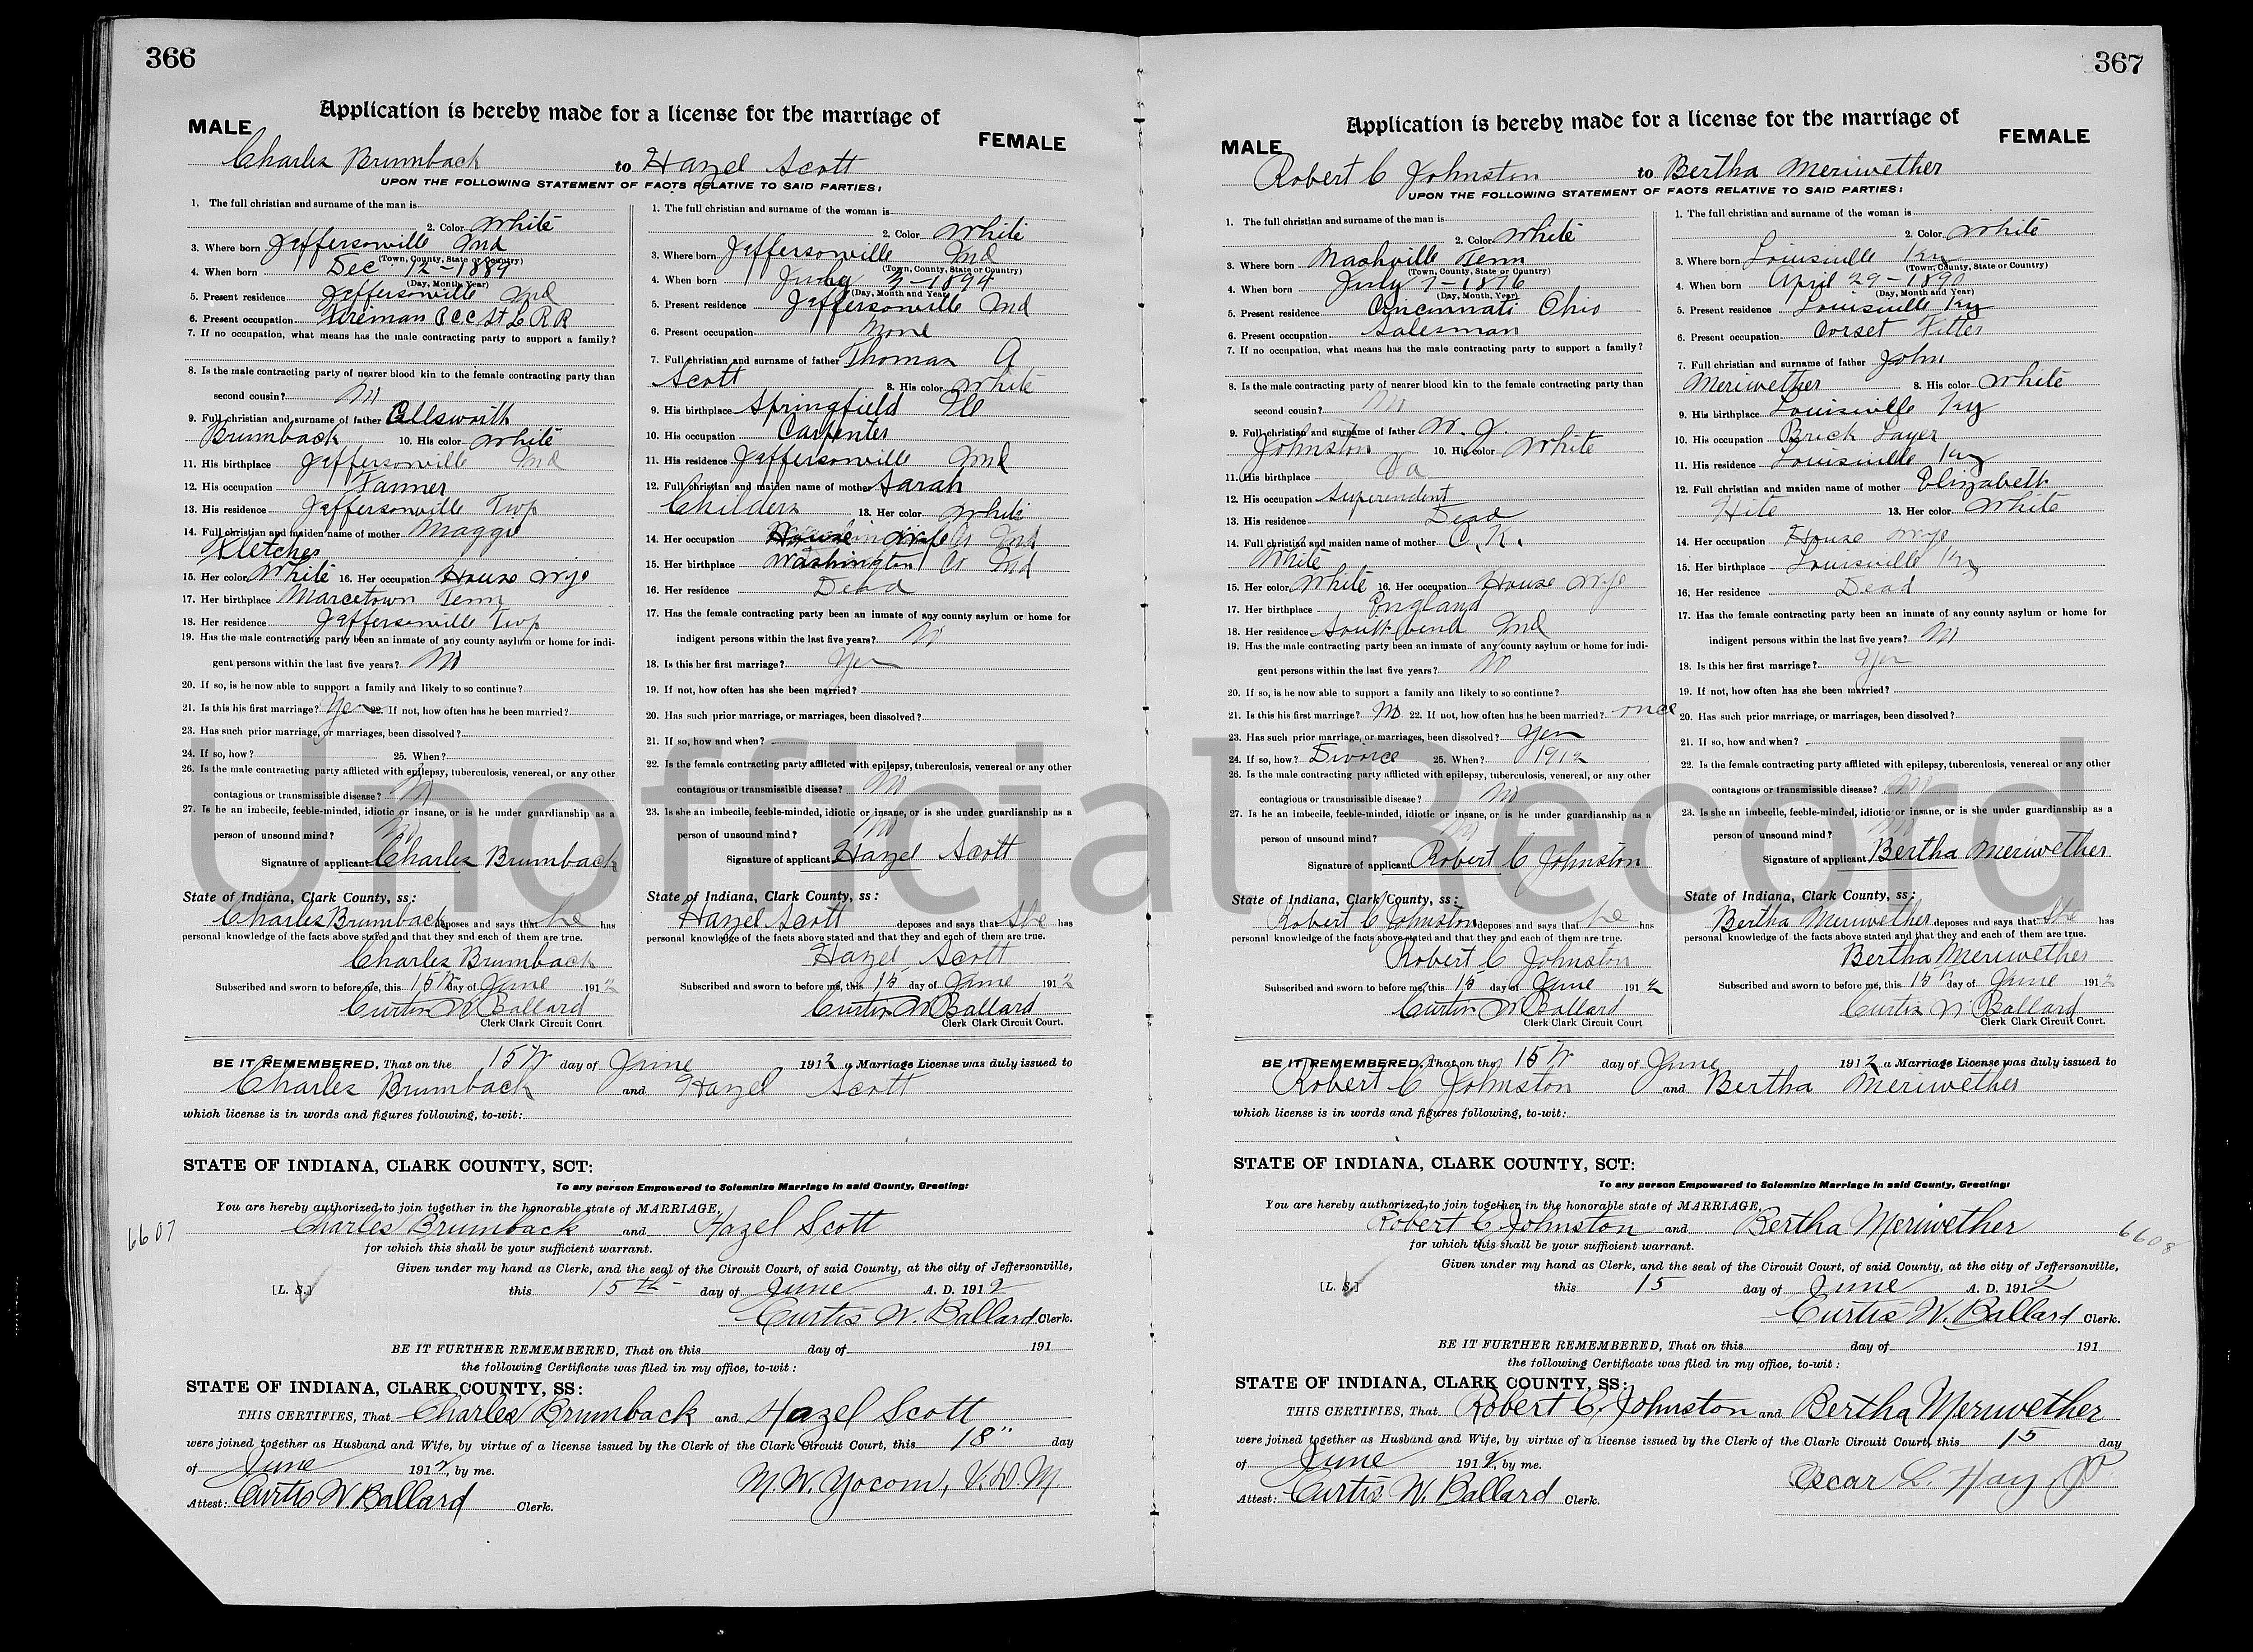 366
Application is hereby made for a license for the marriage of
MALE
FEMALE
Charles Brumback to Hazel Scott
UPON THE FOLLOWING STATEMENT OF FACTS RELATIVE TO SAID PARTIES:
1. The full christian and surname of the man is
2. Color White
3. Where born Jeffersonville Ind
(Town, County, State or Country)
4. When born Dec 12-1889
(Day, Month, Year)
5. Present residence Jeffersonville Ind
6. Present occupation Fireman P C C St L R R
7. If no occupation, what means has the male contracting party to support a family?
8. Is the male contracting party of nearer blood kin to the female contracting party than
second cousin? No
9. Full christian and surname of father Ellsworth
Brumback 10. His color White
11. His birthplace Jeffersonville Ind
12. His occupation Farmer
13. His residence Jeffersonville Twp
14. Full christian and maiden name of mother Maggie
Fletcher
15. Her color White 16. Her occupation House Wife
17. Her birthplace Tenn
18. Her residence Jeffersonville Twp
19. Has the male contracting party been an inmate of any county asylum or home for indi-
gent persons within the last five years? No
20. If so, is he now able to support a family and likely to so continue?
21. Is this his first marriage? Yes 22. If not, how often has he been married?
23. Has such prior marriage, or marriages, been dissolved?
24. If so, how? 25. When?
26. Is the male contracting party afflicted with epilepsy, tuberculosis, venereal, or any other
contagious or transmissible disease? No
27. Is he an imbecile, feeble-minded, idiotic or insane, or is he under guardianship as a
person of unsound mind? No
Signature of applicant Charles Brumback
State of Indiana, Clark County, ss:
Charles Brumback deposes and says that he has
personal knowledge of the facts above stated and that they and each of them are true.
Charles Brumback
Subscribed and sworn to before me, this 15th day of June 1912
Curtis W Ballard
Clerk Clark Circuit Court
1. The full christian and surname of the woman is
2. Color White
3. Where born Jeffersonville Ind
(Town, County, State or Country)
4. When born July 3-1894
(Day, Month and Year)
5. Present residence Jeffersonville Ind
6. Present occupation None
7. Full christian and surname of father Thomas A
Scott 8. His color White
9. His birthplace Springfield Ill
10. His occupation Carpenter
11. His residence Jeffersonville Ind
12. Full christian and maiden name of mother Sarah
Childers 13. Her color White
14. Her occupation House Wife
15. Her birthplace Washington Co Ind
16. Her residence Dead
17. Has the female contracting party been an inmate of any county asylum or home for
indigent persons within the last five years? No
18. Is this her first marriage? Yes
19. If not, how often has she been married?
20. Has such prior marriage, or marriages, been dissolved?
21. If so, how and when?
22. Is the female contracting party afflicted with epilepsy, tuberculosis, venereal or any other
contagious or transmissible disease? No
23. Is she an imbecile, feeble-minded, idiotic or insane, or is she under guardianship as a
person of unsound mind? No
Signature of applicant Hazel Scott
State of Indiana, Clark County, ss:
Hazel Scott deposes and says that She has
personal knowledge of the facts above stated and that they and each of them are true.
Hazel Scott
Subscribed and sworn to before me, this 15 day of June 1912
Curtis W Ballard
Clerk Clark Circuit Court.
BE IT REMEMBERED, That on the 15th day of June 1912 a Marriage License was duly issued to
Charles Brumback and Hazel Scott
which license is in words and figures following, to-wit:
STATE OF INDIANA, CLARK COUNTY, SCT:
To any person Empowered to Solemnize Marriage in said County, Greeting:
You are hereby authorized to join together in the honorable state of MARRIAGE,
6607
Charles Brumback and Hazel Scott
for which this shall be your sufficient warrant.
Given under my hand as Clerk, and the seal of the Circuit Court, of said County, at the city of Jeffersonville,
[L. S.] this 15th day of June A. D. 1912
Curtis W. Ballard Clerk.
BE IT FURTHER REMEMBERED, That on this day of 191
the following Certificate was filed in my office, to-wit:
STATE OF INDIANA, CLARK COUNTY, SS:
THIS CERTIFIES, That Charles Brumback and Hazel Scott
were joined together as Husband and Wife, by virtue of a license issued by the Clerk of the Clark Circuit Court, this 18" day
of June 1912, by me.
M. W. Yocom, V. D. M.
Attest: Curtis W Ballard Clerk.
367
Application is hereby made for a license for the marriage of
MALE
FEMALE
Robert C Johnston to Bertha Meriwether
UPON THE FOLLOWING STATEMENT OF FACTS RELATIVE TO SAID PARTIES:
1. The full christian and surname of the man is
2. Color White
3. Where born Nashville Tenn
(Town, County, State or Country)
4. When born July 7-1876
(Day, Month, Year)
5. Present residence Cincinnati Ohio
6. Present occupation Salesman
7. If no occupation, what means has the male contracting party to support a family?
8. Is the male contracting party of nearer blood kin to the female contracting party than
second cousin? No
9. Full christian and surname of father W. J.
Johnston 10. His color White
11. His birthplace Va
12. His occupation Superendent
13. His residence Dead
14. Full christian and maiden name of mother C. K.
White
15. Her color White 16. Her occupation House Wife
17. Her birthplace England
18. Her residence South bend Ind
19. Has the male contracting party been an inmate of any county asylum or home for indi-
gent persons within the last five years? No
20. If so, is he now able to support a family and likely to so continue?
21. Is this his first marriage? No 22. If not, how often has he been married? once
23. Has such prior marriage, or marriages, been dissolved? Yes
24. If so, how? Divorce 25. When? 1912
26. Is the male contracting party afflicted with epilepsy, tuberculosis, venereal, or any other
contagious or transmissible disease? No
27. Is he an imbecile, feeble-minded, idiotic or insane, or is he under guardianship as a
person of unsound mind? No
Signature of applicant Robert C Johnston
State of Indiana, Clark County, ss:
Robert C Johnston deposes and says that he has
personal knowledge of the facts above stated and that they and each of them are true.
Robert C Johnston
Subscribed and sworn to before me, this 15 day of June 1912
Curtis W Ballard
Clerk Clark Circuit Court
1. The full christian and surname of the woman is
2. Color White
3. Where born Louisville Ky
(Town, County, State or Country)
4. When born April 29-1890
(Day, Month and Year)
5. Present residence Louisville Ky
6. Present occupation Corset Fitter
7. Full christian and surname of father John
Meriwether 8. His color White
9. His birthplace Louisville Ky
10. His occupation Brick Layer
11. His residence Louisville Ky
12. Full christian and maiden name of mother Elizabeth
Hite 13. Her color White
14. Her occupation House Wife
15. Her birthplace Louisville Ky
16. Her residence Dead
17. Has the female contracting party been an inmate of any county asylum or home for
indigent persons within the last five years? No
18. Is this her first marriage? Yes
19. If not, how often has she been married?
20. Has such prior marriage, or marriages, been dissolved?
21. If so, how and when?
22. Is the female contracting party afflicted with epilepsy, tuberculosis, venereal or any other
contagious or transmissible disease? No
23. Is she an imbecile, feeble-minded, idiotic or insane, or is she under guardianship as a
person of unsound mind? No
Signature of applicant Bertha Meriwether
State of Indiana, Clark County, ss:
Bertha Meriwether deposes and says that She has
personal knowledge of the facts above stated and that they and each of them are true.
Bertha Meriwether
Subscribed and sworn to before me, this 15th day of June 1912
Curtis W Ballard
Clerk Clark Circuit Court.
BE IT REMEMBERED, That on the 15th day of June 1912 a Marriage License was duly issued to
Robert C Johnston and Bertha Meriwether
which license is in words and figures following, to-wit:
STATE OF INDIANA, CLARK COUNTY, SCT:
To any person Empowered to Solemnize Marriage in said County, Greeting:
You are hereby authorized to join together in the honorable state of MARRIAGE,
Robert C Johnston and Bertha Meriwether 6608
for which this shall be your sufficient warrant.
Given under my hand as Clerk, and the seal of the Circuit Court, of said County, at the city of Jeffersonville,
[L. S.] this 15 day of June A. D. 1912
Curtis W. Ballard Clerk.
BE IT FURTHER REMEMBERED, That on this day of 191
the following Certificate was filed in my office, to-wit:
STATE OF INDIANA, CLARK COUNTY, SS:
THIS CERTIFIES, That Robert C. Johnston and Bertha Meriwether
were joined together as Husband and Wife, by virtue of a license issued by the Clerk of the Clark Circuit Court, this 15 day
of June 1912, by me.
Oscar L. Hay JP
Attest: Curtis W. Ballard Clerk.
Unofficial Record